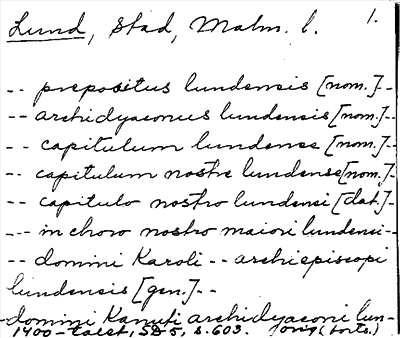 Lund, stad, Malm. l. 1.
-- prepositus lundensis [nom.]--
-- archidyaconus lundensis [nom.]--
-- capitulum lundense [nom.]--
-- capitulum nostre lundense [nom.]-
-- capitulo nostro lundensi [dat.]-
--- in choro nostro maiori lundensi--
-- domini Karoli -- archiepiscopi
lundensis [gen.]--
-domini Kanuti archidyaconi lun-
1400-talet, SD 5, s. 603. Avig (forts.)